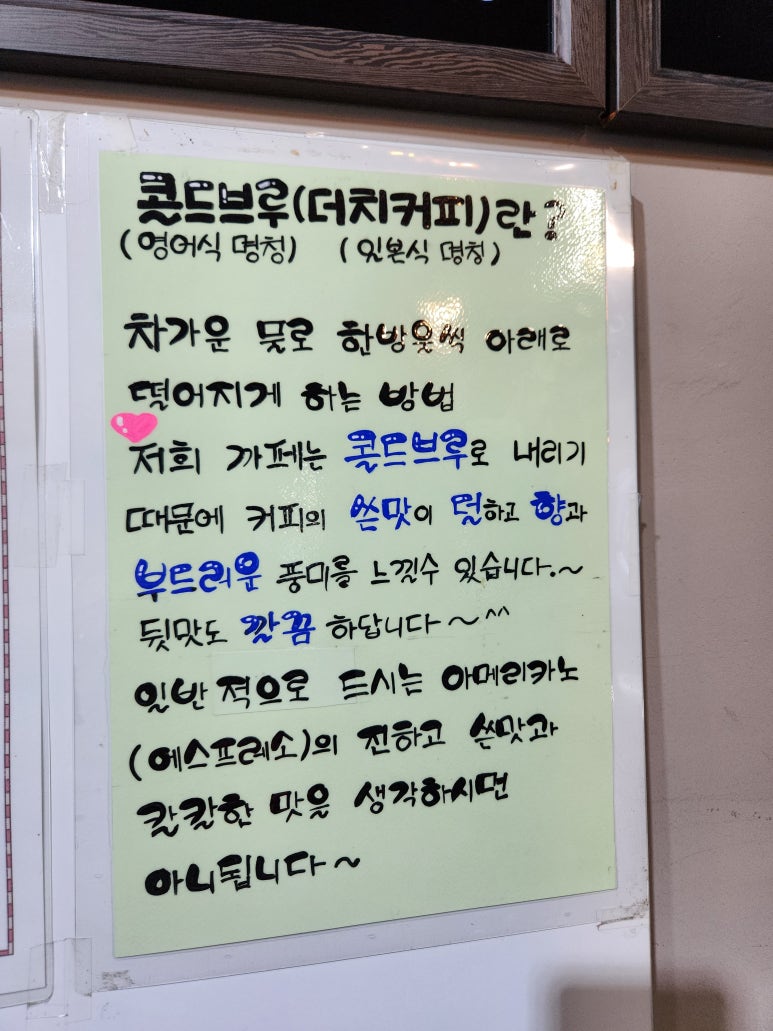 콜드브루(더치커피)란?
(영어식 명칭) (일본식 명칭)
차가운 물로 한방울씩 아래로
떨어지게 하는 방법
저희 까페는 콜드브루로 내리기
때문에 커피의 쓴맛이 덜하고 향과
부드러운 풍미를 느낄수 있습니다.~
뒷맛도 깔끔 하답니다~^^
일반적으로 드시는 아메리카노
(에스프레소)의 진하고 쓴맛과
칼칼한 맛을 생각하시면
아니됩니다~